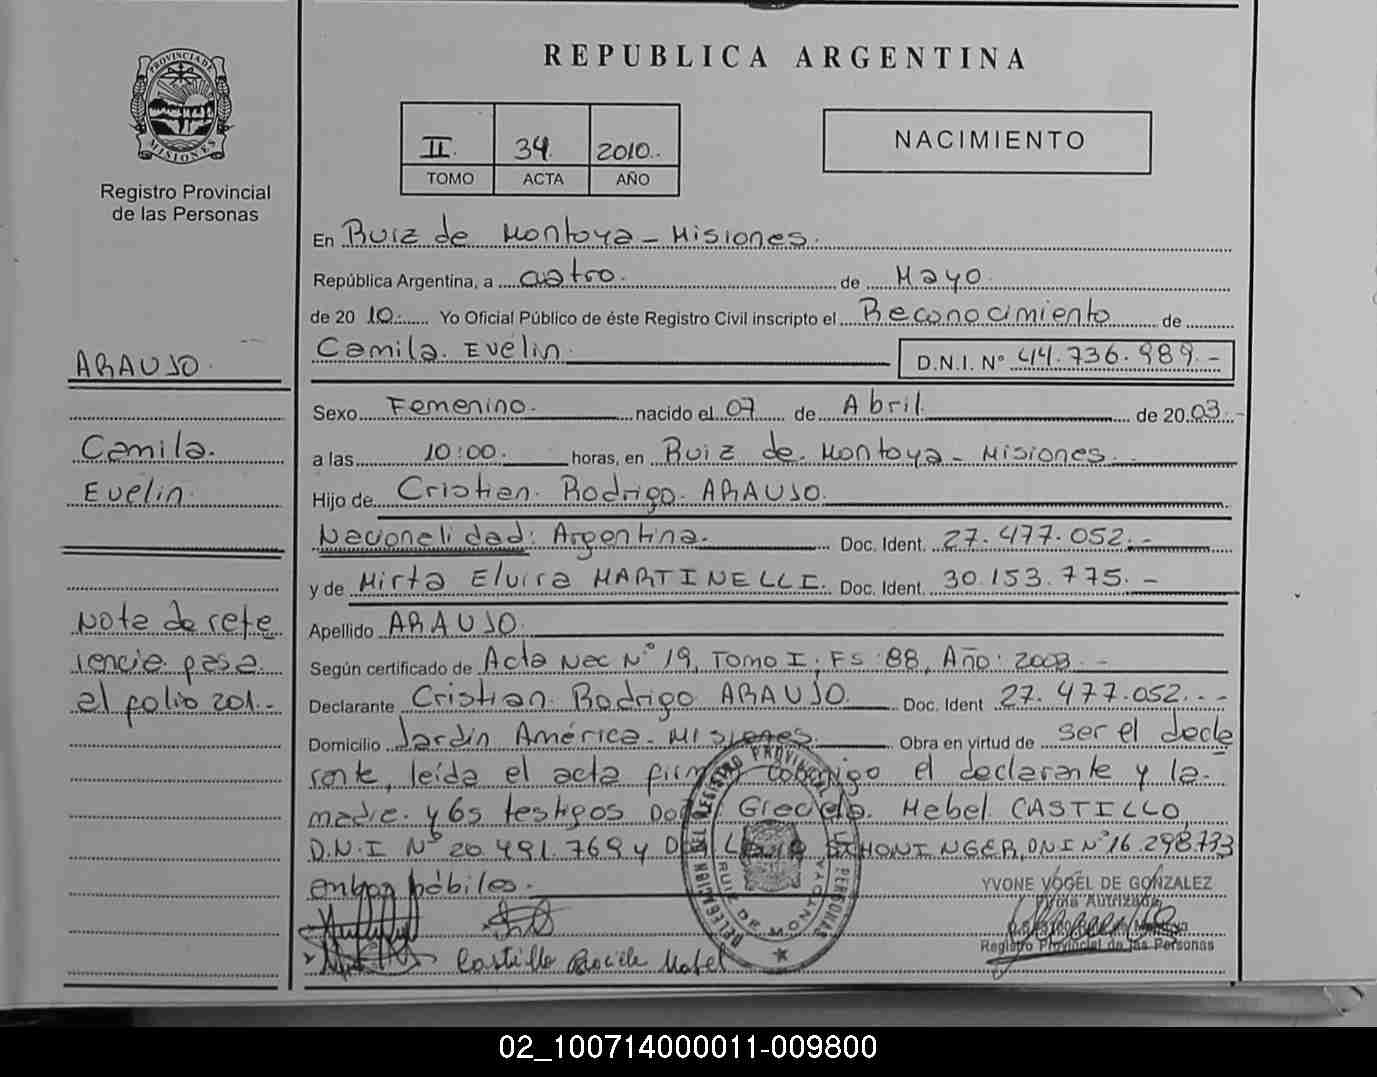 PROVINCIA DE
MISIONES
Registro Provincial
de las Personas
ARAUJO.
Camila.
Evelin.
Nota de refe
rencia pasa
al folio 201.-
REPUBLICA ARGENTINA
II. 34. 2010..
TOMO ACTA AÑO
NACIMIENTO
En Ruiz de Montoya - Misiones.
República Argentina, a cuatro. de Mayo.
de 20 10. Yo Oficial Público de éste Registro Civil inscripto el Reconocimiento de
Camila. Evelin. D.N.I. Nº 44.736.989.-
Sexo Femenino. nacido el 07 de Abril de 20 03.-
a las 10:00. horas, en Ruiz de. Montoya - Misiones.
Hijo de Cristian. Rodrigo. ARAUJO.
Nacionalidad: Argentina. Doc. Ident. 27.477.052.-
y de Mirta Elvira MARTINELLI. Doc. Ident. 30.153.775.-
Apellido ARAUJO.
Según certificado de Acta Nac Nº 19, Tomo I, Fs: 88, Año: 2003.-
Declarante Cristian. Rodrigo ARAUJO. Doc. Ident 27.477.052..-
Domicilio Jardín América - Misiones. Obra en virtud de ser el decla
rante, leída el acta firma conmigo el declarante y la.
madre. y los testigos Doña Graciela. Mabel CASTILLO,
D.N.I Nº 20.491.769 y Don SCHONINGER, DNI Nº 16.298.733
ambos hábiles.-
DELEGACION DEL REGISTRO PROVINCIAL DE LAS PERSONAS
RUIZ DE MONTOYA
YVONE VOGEL DE GONZALEZ
Firma Autrizada
Registro Provincial de las Personas
Castillo Mabel
02_100714000011-009800